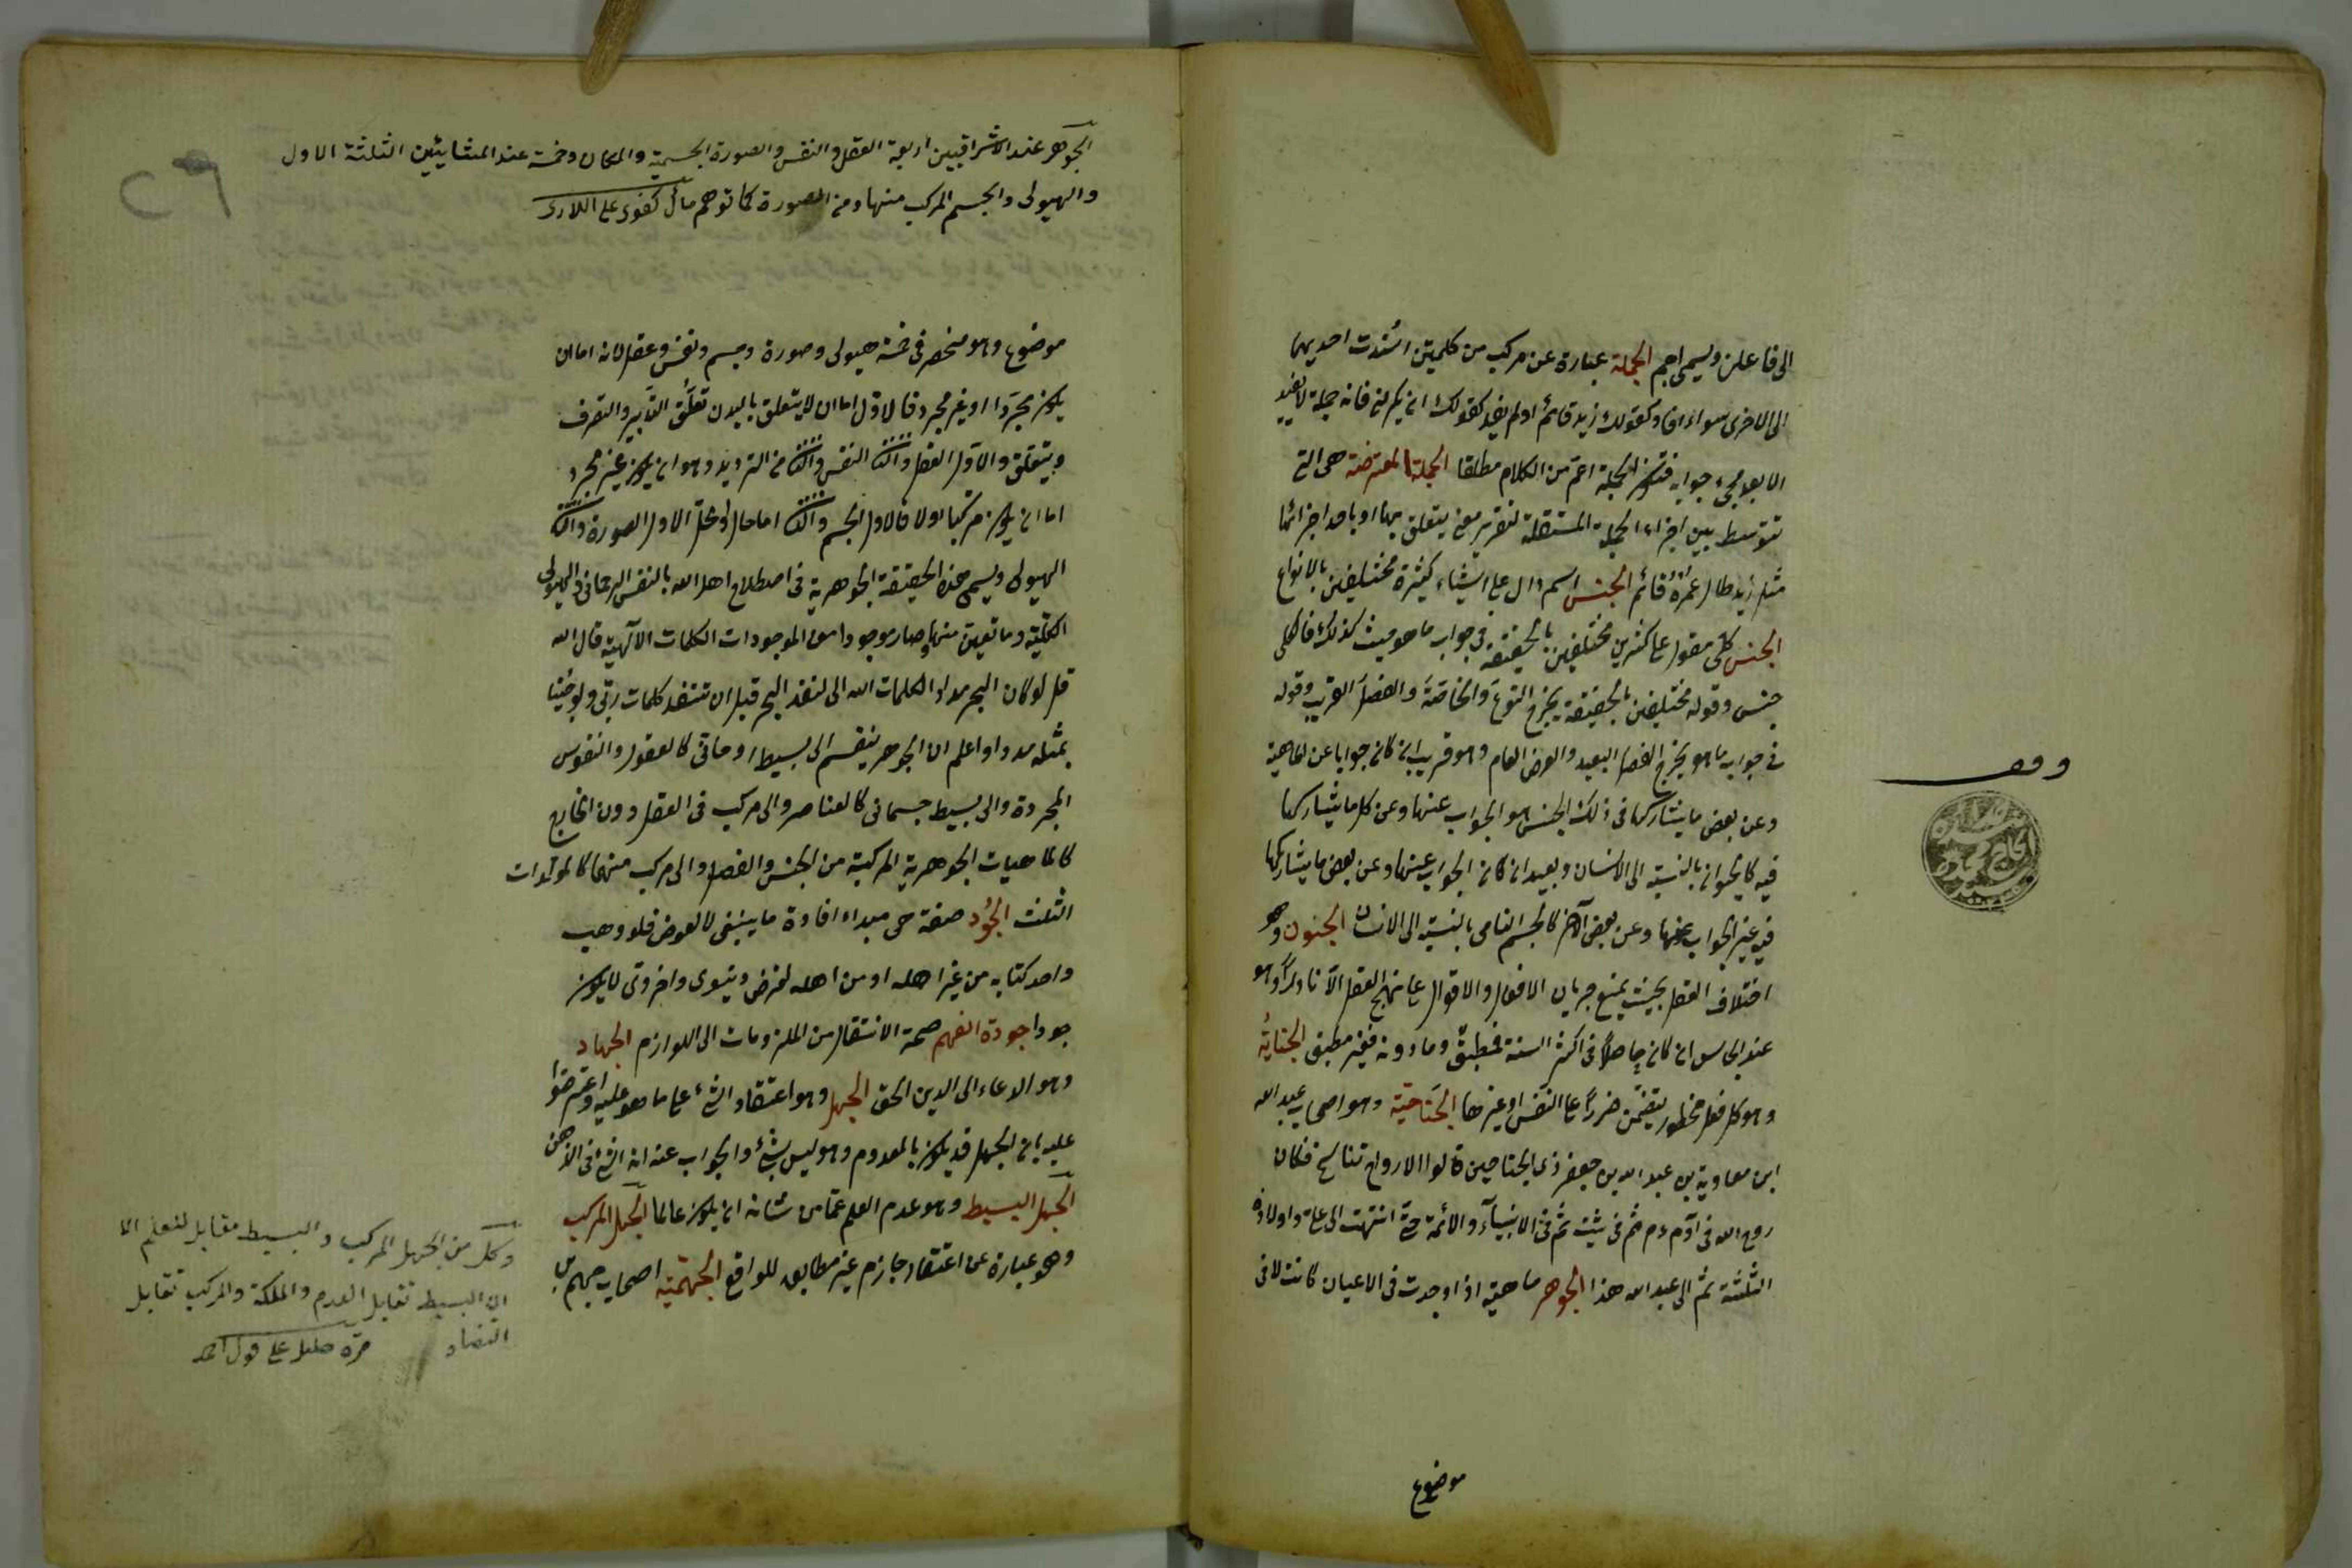 الى فاعلن ويسمى اجم الجملة عبارة عن مركب من كلمتين اسندت احديهما
الى الاخرى سواء افاد كقولك زيد قائم او لم يفد كقولك ان يكرمنى فانه جملة لا يفيد
الا بعد مجىء جوابه فتكون الجملة اعم من الكلام مطلقا الجملة المعترضة هى التى
تتوسط بين اجزاء الجملة المستقلة لتقرير معنى يتعلق بها او باحد اجزائها
مثل زيد طال عمره قائم الجنس اسم دال على اشياء كثيرة مختلفين بالانواع
الجنس كلى مقول على كثيرين مختلفين بالحقيقة فى جواب ما هو من حيث كذلك فالكلى
جنس وقوله مختلفين بالحقيقة يخرج النوع والخاصة والفصل القريب وقوله
فى جواب ما هو يخرج الفصل البعيد والعرض العام وهو قريب ان كان جوابا عن الماهية
وعن بعض ما يشاركها فى ذلك الجنس هو الجواب عنها وعن كل ما يشاركها
فيه كالحيوان بالنسبة الى الانسان وبعيد ان كان الجواب عنها وعن بعض ما يشاركها
فيه غير الجواب عنها وعن بعض الآخر كالجسم النامى بالنسبة الى الانسان الجنون وهو
اختلاف العقل بحيث يمنع جريان الافعال والاقوال على نهج العقل الا نادرا وهو
عند ابى يوسف ان كان حاصلا فى اكثر السنة فمطبق وما دونه فغير مطبق الجناية
وهو كل فعل محظور يتضمن ضررا على النفس او غيرها الجناحية وهو اصحاب عبد الله
ابن معاوية بن عبد الله بن جعفر ذى الجناحين قالوا الارواح تناسخ فكان
روح الله فى آدم ثم فى شيث ثم فى الانبياء والائمة حتى انتهت الى على واولاده
الثلثة ثم الى عبد الله هذا الجوهر ماهية اذا وجدت فى الاعيان كانت لا فى
موضوع
وقف
الجوهر عند الاشراقيين اربعة العقل والنفس والصورة الجسمية والمكان وخمسة عند المشائيين الثلثة الاول
والهيولى والجسم المركب منها ومن الصورة كما توهم كفوى على اللارى
موضوع وهو منحصر فى خمسة هيولى وصورة وجسم ونفس وعقل لانه اما ان
يكون مجردا او غير مجرد فالاول اما ان لا يتعلق بالبدن تعلق التدبير والتصرف
او يتعلق والاول العقل والثانى النفس والثانى من الترديد وهو ان يكون غير مجرد
اما ان يكون مركبا او لا فالاول الجسم والثانى اما حال او محل الاول الصورة والثانى
الهيولى ويسمى هذه الحقيقة الجوهرية فى اصطلاح اهل الله بالنفس الرحمانى والهيولى
الكلية وما تعين منها وصار موجودا من الموجودات الكلمات الآلهية قال الله
قل لو كان البحر مدادا لكلمات الله الى لنفد البحر قبل ان تنفد كلمات ربى ولو جئنا
بمثله مددا واعلم ان الجوهر ينقسم الى بسيط روحانى كالعقول والنفوس
المجردة والى بسيط جسمانى كالعناصر والى مركب فى العقل دون الخارج
كالماهيات الجوهرية المركبة من الجنس والفصل والى مركب منهما كالمولدات
الثلث الجود صفة هى مبداء افادة ما ينبغى لا لعوض فلو وهب
واحد كتابه من غير اهله او من اهله لغرض دنيوى واخروى لا يكون
جودا جودة الفهم صحة الانتقال من الملزومات الى اللوازم الجهاد
وهو الدعاء الى الدين الحق الجهل وهو اعتقاد الشىء على ما هو عليه واعترضوا
عليه بان الجهل قد يكون بالمعدوم وهو ليس بشىء والجواب عنه انه شىء فى الذهن
الجهل البسيط وهو عدم العلم عما من شانه ان يكون عالما الجهل المركب
وهو عبارة عن اعتقاد جازم غير مطابق للواقع الجهمية اصحاب جهم بن
وكل من الجهل المركب والبسيط مقابل للعلم الا
ان البسيط تقابل العدم والملكة والمركب تقابل
التضاد قره خليل على قول احمد